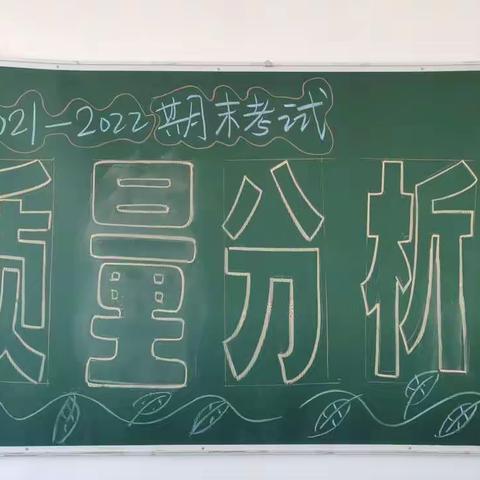 2021-2022期末考试
质量分析